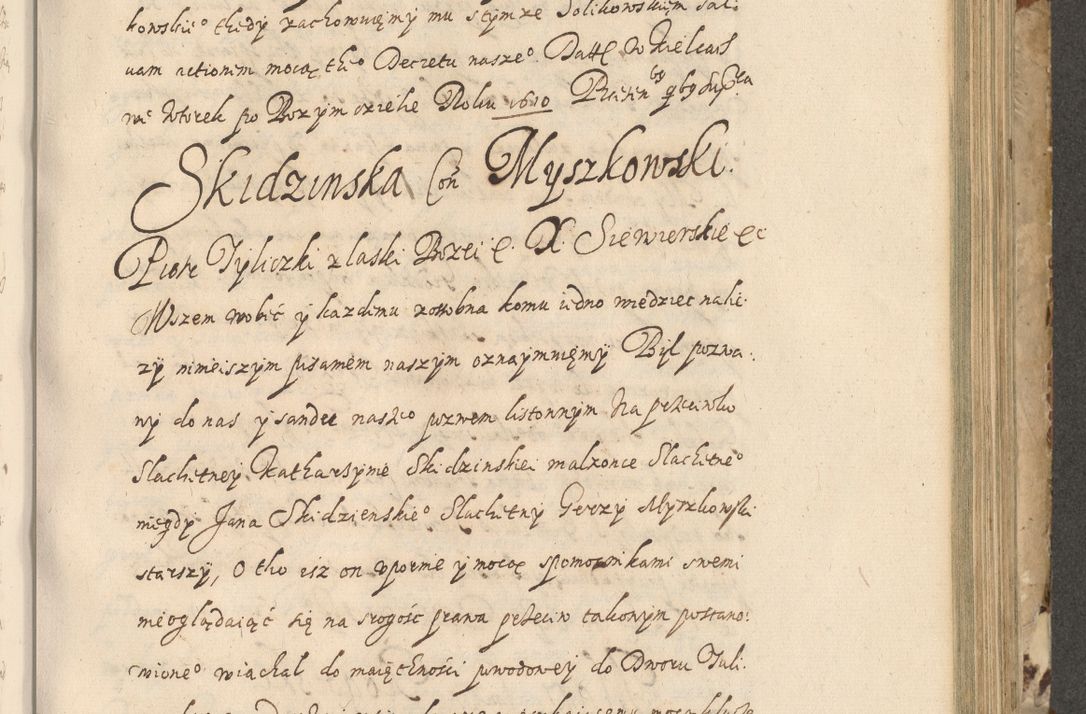 kowskie° thedy zachowuięmy mu stymże Solikowskiem sal:
uam actionem mocą th° Decretu nasze° Datt w Kielcach
we Wtorek po Bożym ciele Roku 1610
Skidzinska Con Myszkowski.
Piotr Tyliczki z laski Bozei e. X. Siewierskie ec
Wszem wobec y każdemu zosobna komu iedno wiedziec nale:
zy ninieiszym pisaniem naszym oznaymuięmy Był pozwa:
ny do nas y sandu nasze° pozwem listownym Na przeciwko
Slachetney Katharzynie Skidzinskiei malzonce Slachetne°
niegdy Jana Skidzienskie° Slachetny Jerzy Myszkowski
starszy, O tho isz on vpornie y mocą spomocnikami swemi
nieoglądaiąć się na srogość prawa przeciw takowym postano:
wione° wiachal do maięthności pwodowey do Dworu